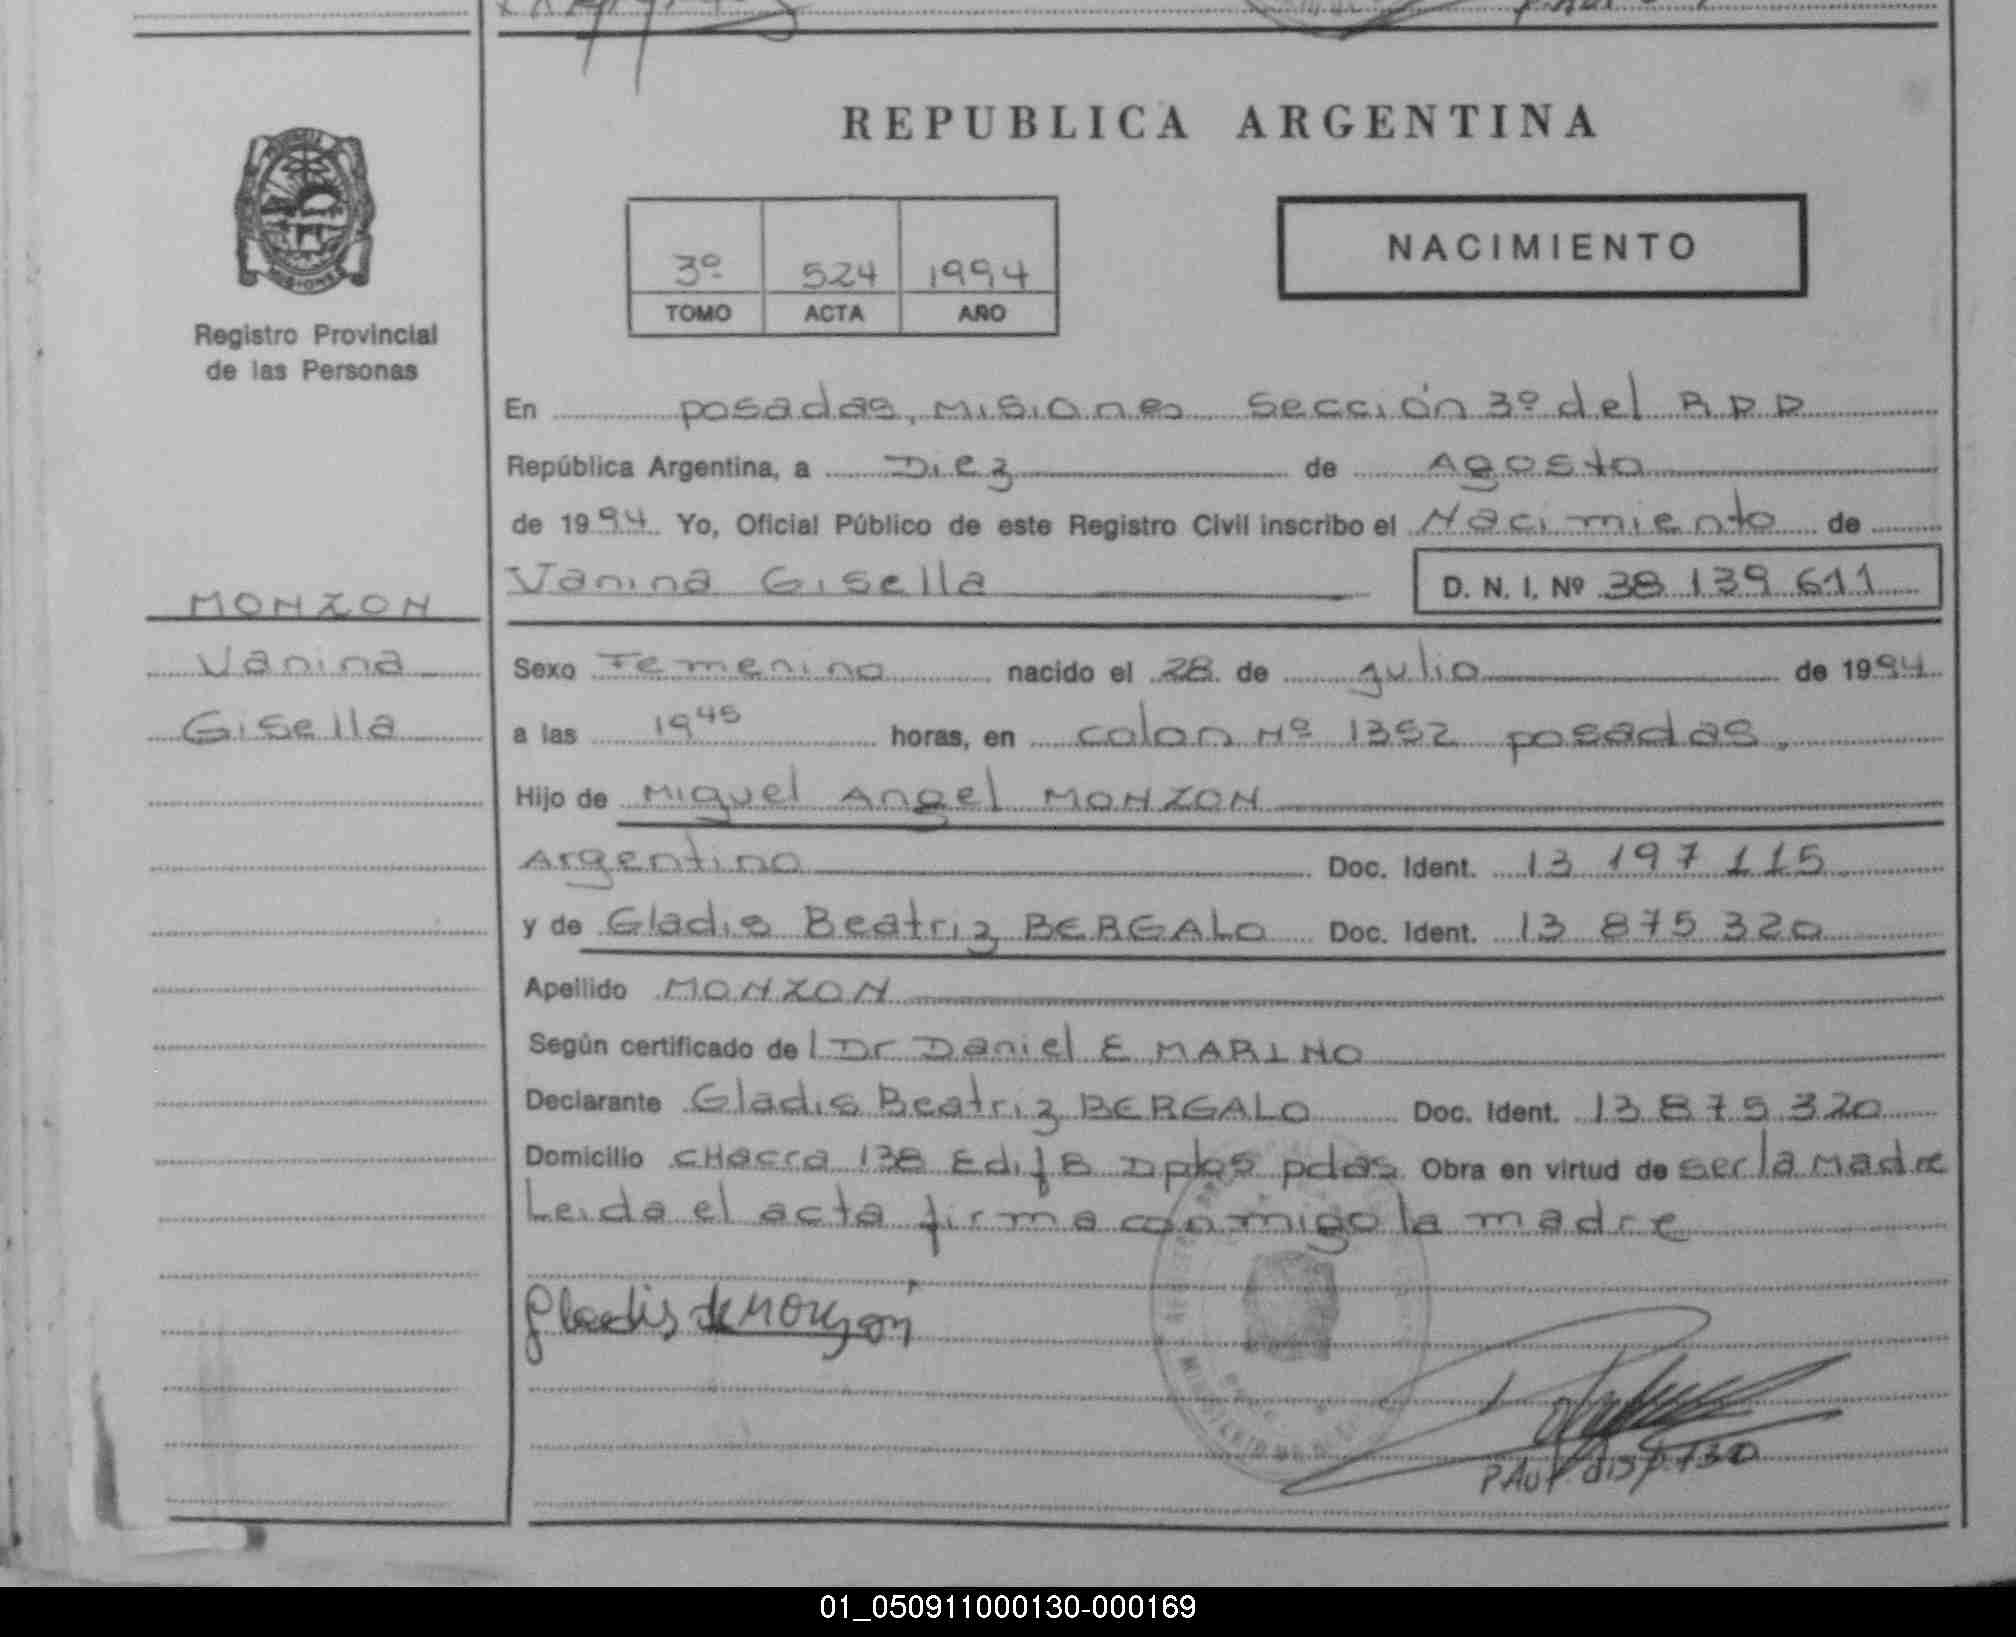 REPUBLICA ARGENTINA
3º 524 1994
TOMO ACTA AÑO
NACIMIENTO
MISIONES
Registro Provincial
de las Personas
MONZON
Vanina
Gisella
En posadas, Misiones Sección 3º del RPP
República Argentina, a Diez de Agosto
de 1994 Yo, Oficial Público de este Registro Civil inscribo el Nacimiento de
Vanina Gisella D. N. I. Nº 38 139 611
Sexo Femenino nacido el 28 de julio de 1994
a las 19 45 horas, en colon Nº 1352 posadas.
Hijo de Miguel Angel MONZON
Argentino Doc. Ident. 13 197 115
y de Gladis Beatriz BERGALO Doc. Ident. 13 875 320
Apellido MONZON
Según certificado de l Dr Daniel E MARINO
Declarante Gladis Beatriz BERGALO Doc. Ident. 13 875 320
Domicilio CHacra 138 Edif 8 Dpto5 pdas Obra en virtud de ser la Madre
Leida el acta firma conmigo la madre
Gladis de Monzon
P.Aut. disp. 130
01_050911000130-000169